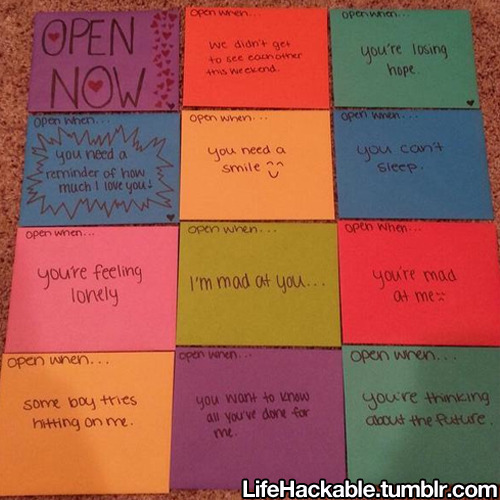 OPEN
NOW
Open when...
we didn't get
to see eachother
this weekend.
Open when...
you're losing
hope.
Open when...
you need a
reminder of how
much I love you!
Open when...
you need a
smile
Open when...
you can't
sleep.
Open when...
you're feeling
lonely
Open when...
I'm mad at you...
Open when...
you're mad
at me:
Open when...
some boy tries
hitting on me.
Open when...
you want to know
all you've done for
me.
Open when...
you're thinking
about the future.
LifeHackable.tumblr.com